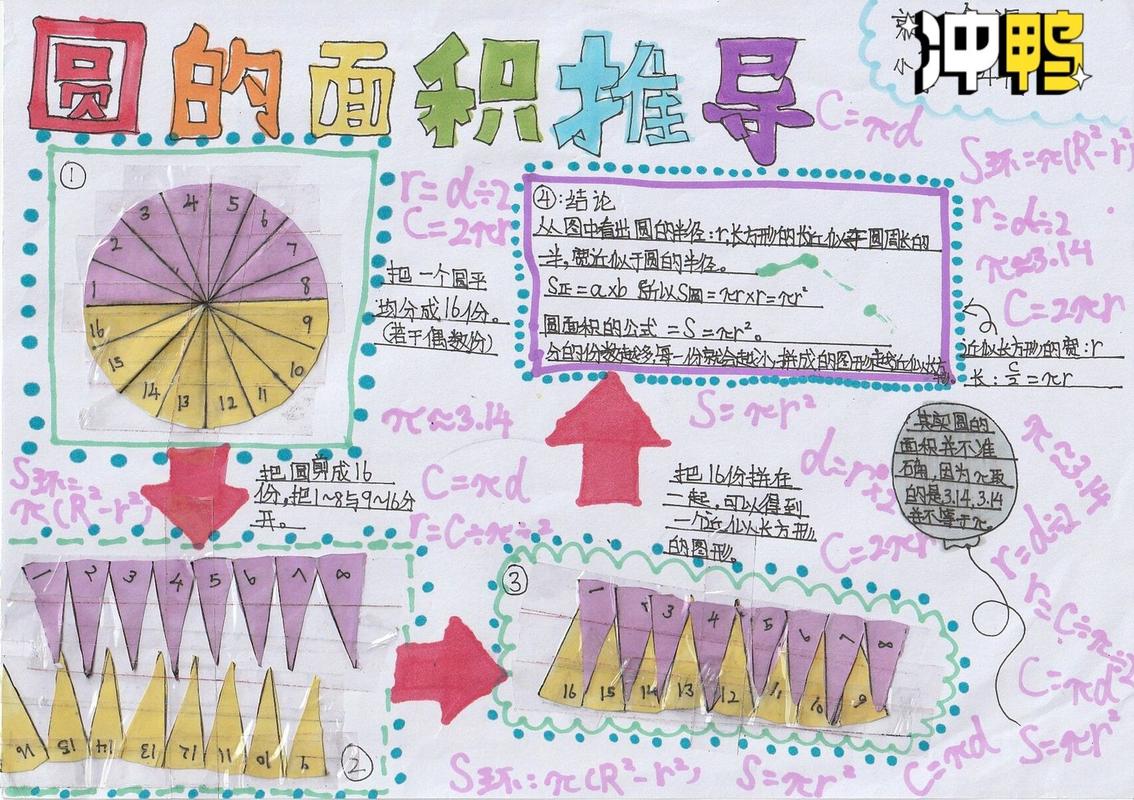 圆的面积推导
冲鸭
C=πd
S环=π(R²-r²)
①
3 4 5 6
2 7
1 8
16 9
15 10
14 13 12 11
r=d÷2
C=2πr
把一个圆平
均分成16份。
(若干偶数份)
π≈3.14
④:结论
从图中看出圆的半径:r,长方形的长近似等于圆周长的
一半,宽近似于圆的半径。
S=a×b 所以S圆=πr×r=πr²
圆面积的公式=S=πr²。
分的份数越多,每一份就会越小,拼成的图形越近似长方
形。
r=d÷2
π≈3.14
C=2πr
近似长方形的宽:r
长:C/2=πr
S环=
π(R²-r²)
把圆剪成16
份,把1~8与9~16分
开。
C=πd
r=C÷π÷2
S=πr²
把16份拼在
一起,可以得到
一个近似长方形
的图形。
d=r
×2
C=2πr
其实圆的
面积并不准
确,因为π取
的是3.14,3.14
并不等于π。
π≈3.14
r=d÷2
r=C÷π÷2
C=πd
S=πr²
1 2 3 4 5 6 7 8
16 15 14 13 12 11 10 9
②
③
1 2 3 4 5 6 7 8
16 15 14 13 12 11 10 9
S环:π(R²-r²)
S=πr²
C=πd